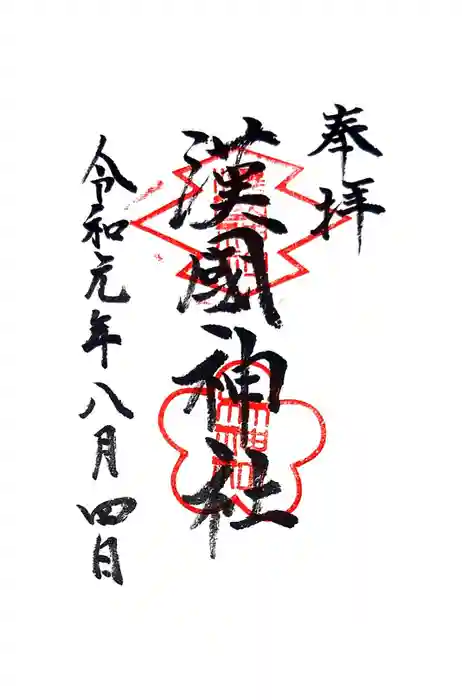 奉拝
漢國神社
令和元年八月四日